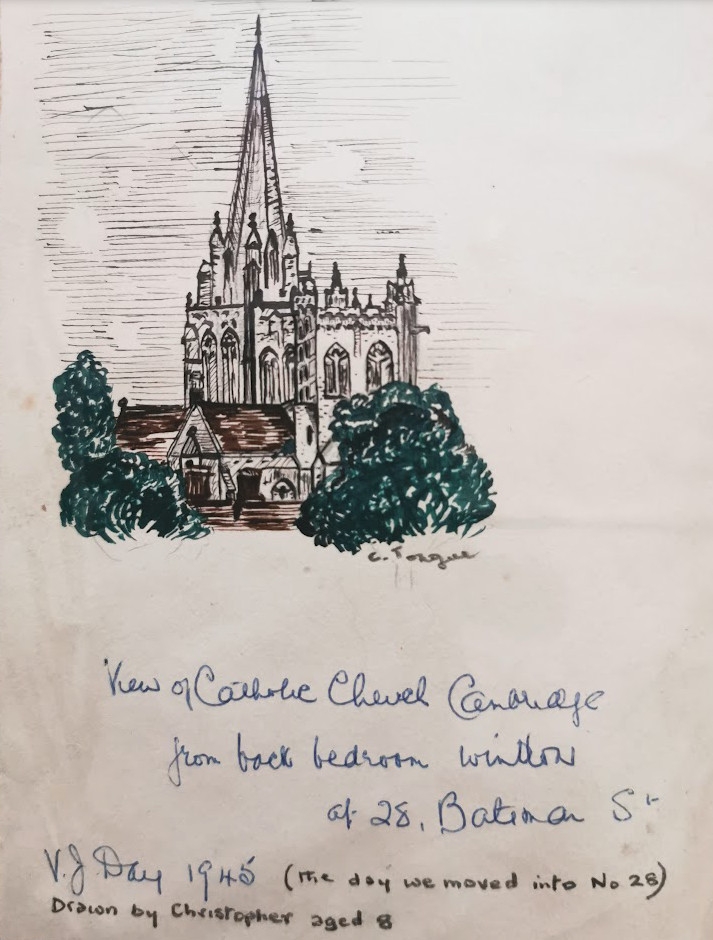 C. Tongue
View of Catholic Church Cambridge
from back bedroom window
at 28, Bateman St
V.J Day 1945 (the day we moved into No 28)
Drawn by Christopher aged 8